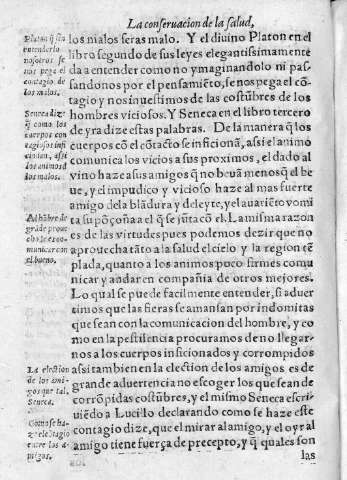 La conseruacion de la salud,
los malos seras malo. Y el diuino Platon en el
libro segundo de sus leyes elegantissimamente
da a entender como no ymaginandolo ni pas-
sandonos por el pensamiẽto, se nos pega el cõ-
tagio y nos inuestimos de las costũbres de los
hombres viciosos. Y Seneca en el libro tercero
de yra dize estas palabras. De la manera q̃ los
cuerpos cõ el cõtacto se inficionã, assi el animo
comunica los vicios a sus proximos, el dado al
vino haze a sus amigos q̃ no beuã menos q̃ el be
ue, y el impudico y vicioso haze al mas fuerte
amigo de la blãdura y deleyte, y el auariẽto vomi
ta su põçoña a el q̃ se jũta cõ el. La misma razon
es de las virtudes pues podemos dezir que no
aprouecha tãto a la salud el cielo y la region tẽ
plada, quanto a los animos poco firmes comu
nicar y andar en compañia de otros mejores.
Lo qual se puede facilmente entender, si aduer
timos que las fieras se amansan por indomitas
que sean con la comunicacion del hombre, y co
mo en la pestilencia procuramos de no llegar-
nos a los cuerpos inficionados y corrompidos
assi tambien en la election de los amigos es de
grande aduertencia no escoger los que sean de
corrõpidas costũbres, y el mismo Seneca escri-
uiẽdo a Lucillo declarando como se haze este
contagio dize, que el mirar al amigo, y el oyr al
amigo tiene fuerça de precepto, y q̃ quales son
las
Platon q̃ sin
entenderlo
nosotros se
nos pega el
contagio de
los malos.
Seneca dize
q̃ como los
cuerpos con
tagiosos infi
cionan, assi
los animos d
los malos.
Al hõbre de
grãde proue
cho le es co-
municar con
el bueno.
La election
de los ami-
gos que tal.
Seneca.
Como se ha-
ze el cõtagio
entre los a-
migos.